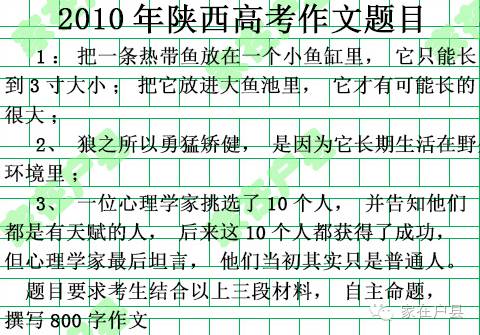 2010年陕西高考作文题目
1：把一条热带鱼放在一个小鱼缸里，它只能长
到3寸大小；把它放进大鱼池里，它才有可能长的
很大；
2、狼之所以勇猛矫健，是因为它长期生活在野
环境里；
3、一位心理学家挑选了10个人，并告知他们
都是有天赋的人，后来这10个人都获得了成功，
但心理学家最后坦言，他们当初其实只是普通人。
题目要求考生结合以上三段材料，自主命题，
撰写800字作文
家在户县
家在户县
家在户县
家在户县
家在户县
家在户县